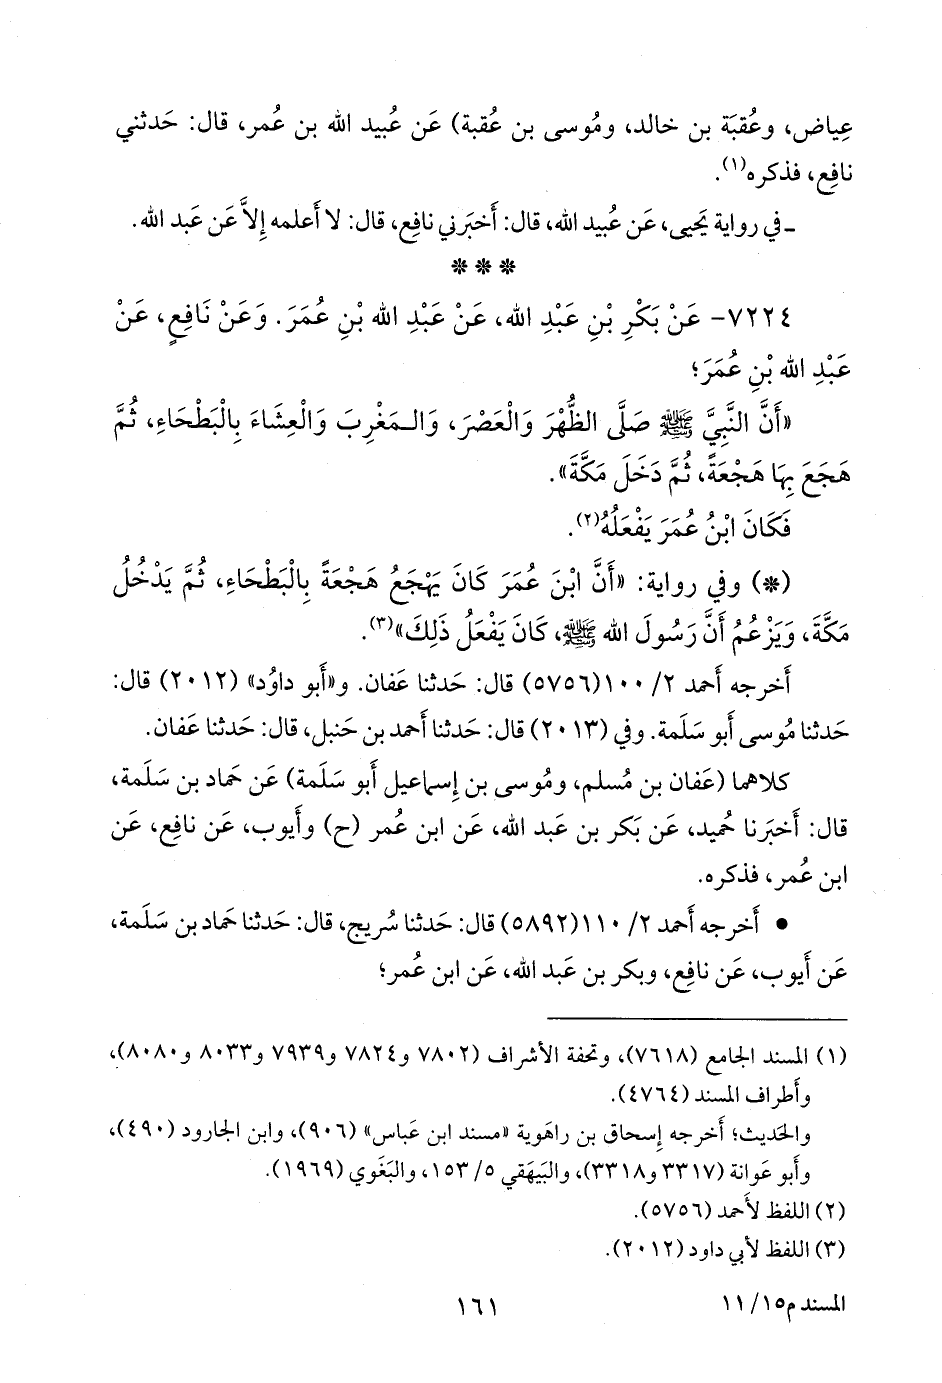 عِياض، وعُقبَة بن خالد، ومُوسى بن عُقبة) عَن عُبيد الله بن عُمر، قال: حَدثني
نافِع، فذكره(١).
ـ في رواية يَحيى، عَن عُبيد الله، قال: أَخبَرني نافِع، قال: لا أَعلمه إِلاَّ عَن عَبد الله.
* * *
٧٢٢٤- عَنْ بَكْرِ بْنِ عَبْدِ الله، عَنْ عَبْدِ الله بْنِ عُمَرَ. وَعَنْ نَافِعٍ، عَنْ
عَبْدِ الله بْنِ عُمَرَ؛
«أَنَّ النَّبِيَّ ﷺ صَلَّى الظُّهْرَ وَالْعَصْرَ، وَالـمَغْرِبَ وَالْعِشَاءَ بِالْبَطْحَاءِ، ثُمَّ
هَجَعَ بِهَا هَجْعَةً، ثُمَّ دَخَلَ مَكَّةَ».
فَكَانَ ابْنُ عُمَرَ يَفْعَلُهُ(٢).
(*) وفي رواية: «أَنَّ ابْنَ عُمَرَ كَانَ يَهْجَعُ هَجْعَةً بِالْبَطْحَاءِ، ثُمَّ يَدْخُلُ
مَكَّةَ، وَيَزْعُمُ أَنَّ رَسُولَ الله ﷺ، كَانَ يَفْعَلُ ذَلِكَ»(٣).
أَخرجه أَحمد ٢/ ١٠٠(٥٧٥٦) قال: حَدثنا عَفان. و«أَبو داوُد» (٢٠١٢) قال:
حَدثنا مُوسى أَبو سَلَمة. وفي (٢٠١٣) قال: حَدثنا أَحمد بن حَنبل، قال: حَدثنا عَفان.
كلاهما (عَفان بن مُسلم، ومُوسى بن إِسماعيل أَبو سَلَمة) عَن حَماد بن سَلَمة،
قال: أَخبَرنا حُميد، عَن بَكر بن عَبد الله، عَن ابن عُمر (ح) وأَيوب، عَن نافِع، عَن
ابن عُمر، فذكره.
• أَخرجه أَحمد ٢/ ١١٠(٥٨٩٢) قال: حَدثنا سُريج، قال: حَدثنا حَماد بن سَلَمة،
عَن أَيوب، عَن نافِع، وبكر بن عَبد الله، عَن ابن عُمر؛
(١) المسند الجامع (٧٦١٨)، وتحفة الأشراف (٧٨٠٢ و٧٨٢٤ و٧٩٣٩ و٨٠٣٣ و٨٠٨٠)،
وأَطراف المسند (٤٧٦٤).
والحَديث؛ أَخرجه إِسحاق بن راهَوية «مسند ابن عباس» (٩٠٦)، وابن الجارود (٤٩٠)،
وأَبو عَوانة (٣٣١٧ و٣٣١٨)، والبَيهَقي ٥/ ١٥٣، والبَغَوي (١٩٦٩).
(٢) اللفظ لأَحمد (٥٧٥٦).
(٣) اللفظ لأَبي داود (٢٠١٢).
المسند م١٥/ ١١
١٦١